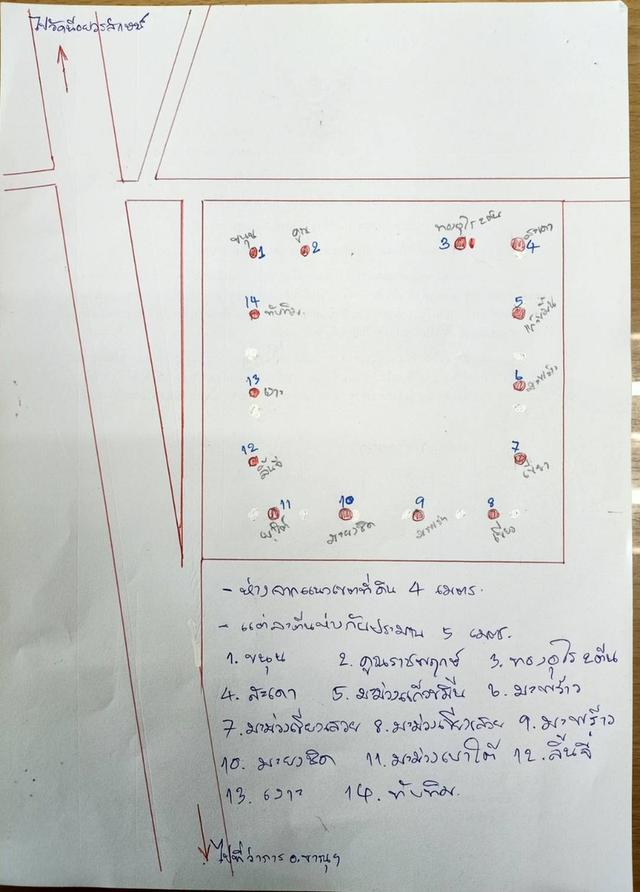 ขนุน
คูน
3
สะเดา
1
2
4
14
ทับทิม
5
13
เงาะ
6
มะพร้าว
12
ลิ้นจี่
7
11
10
มะยงชิด
9
มะพร้าว
8
- ห่างจากแนวเขตที่ดิน 4 เมตร.
- แต่ละต้นห่างกันประมาณ 5 เมตร.
1. ขนุน 2. คูนราชพฤกษ์ 3. ทองอุไร 2 ต้น
4. สะเดา 5. มะม่วงแก้วขมิ้น 6. มะพร้าว
7. มะม่วงเขียวเสวย 8. มะม่วงเขียวเสวย 9. มะพร้าว
10. มะยงชิด 11. มะม่วงเบาใต้ 12. ลิ้นจี่
13. เงาะ 14. ทับทิม.
ไปที่ว่าการ อ.ขาณุฯ